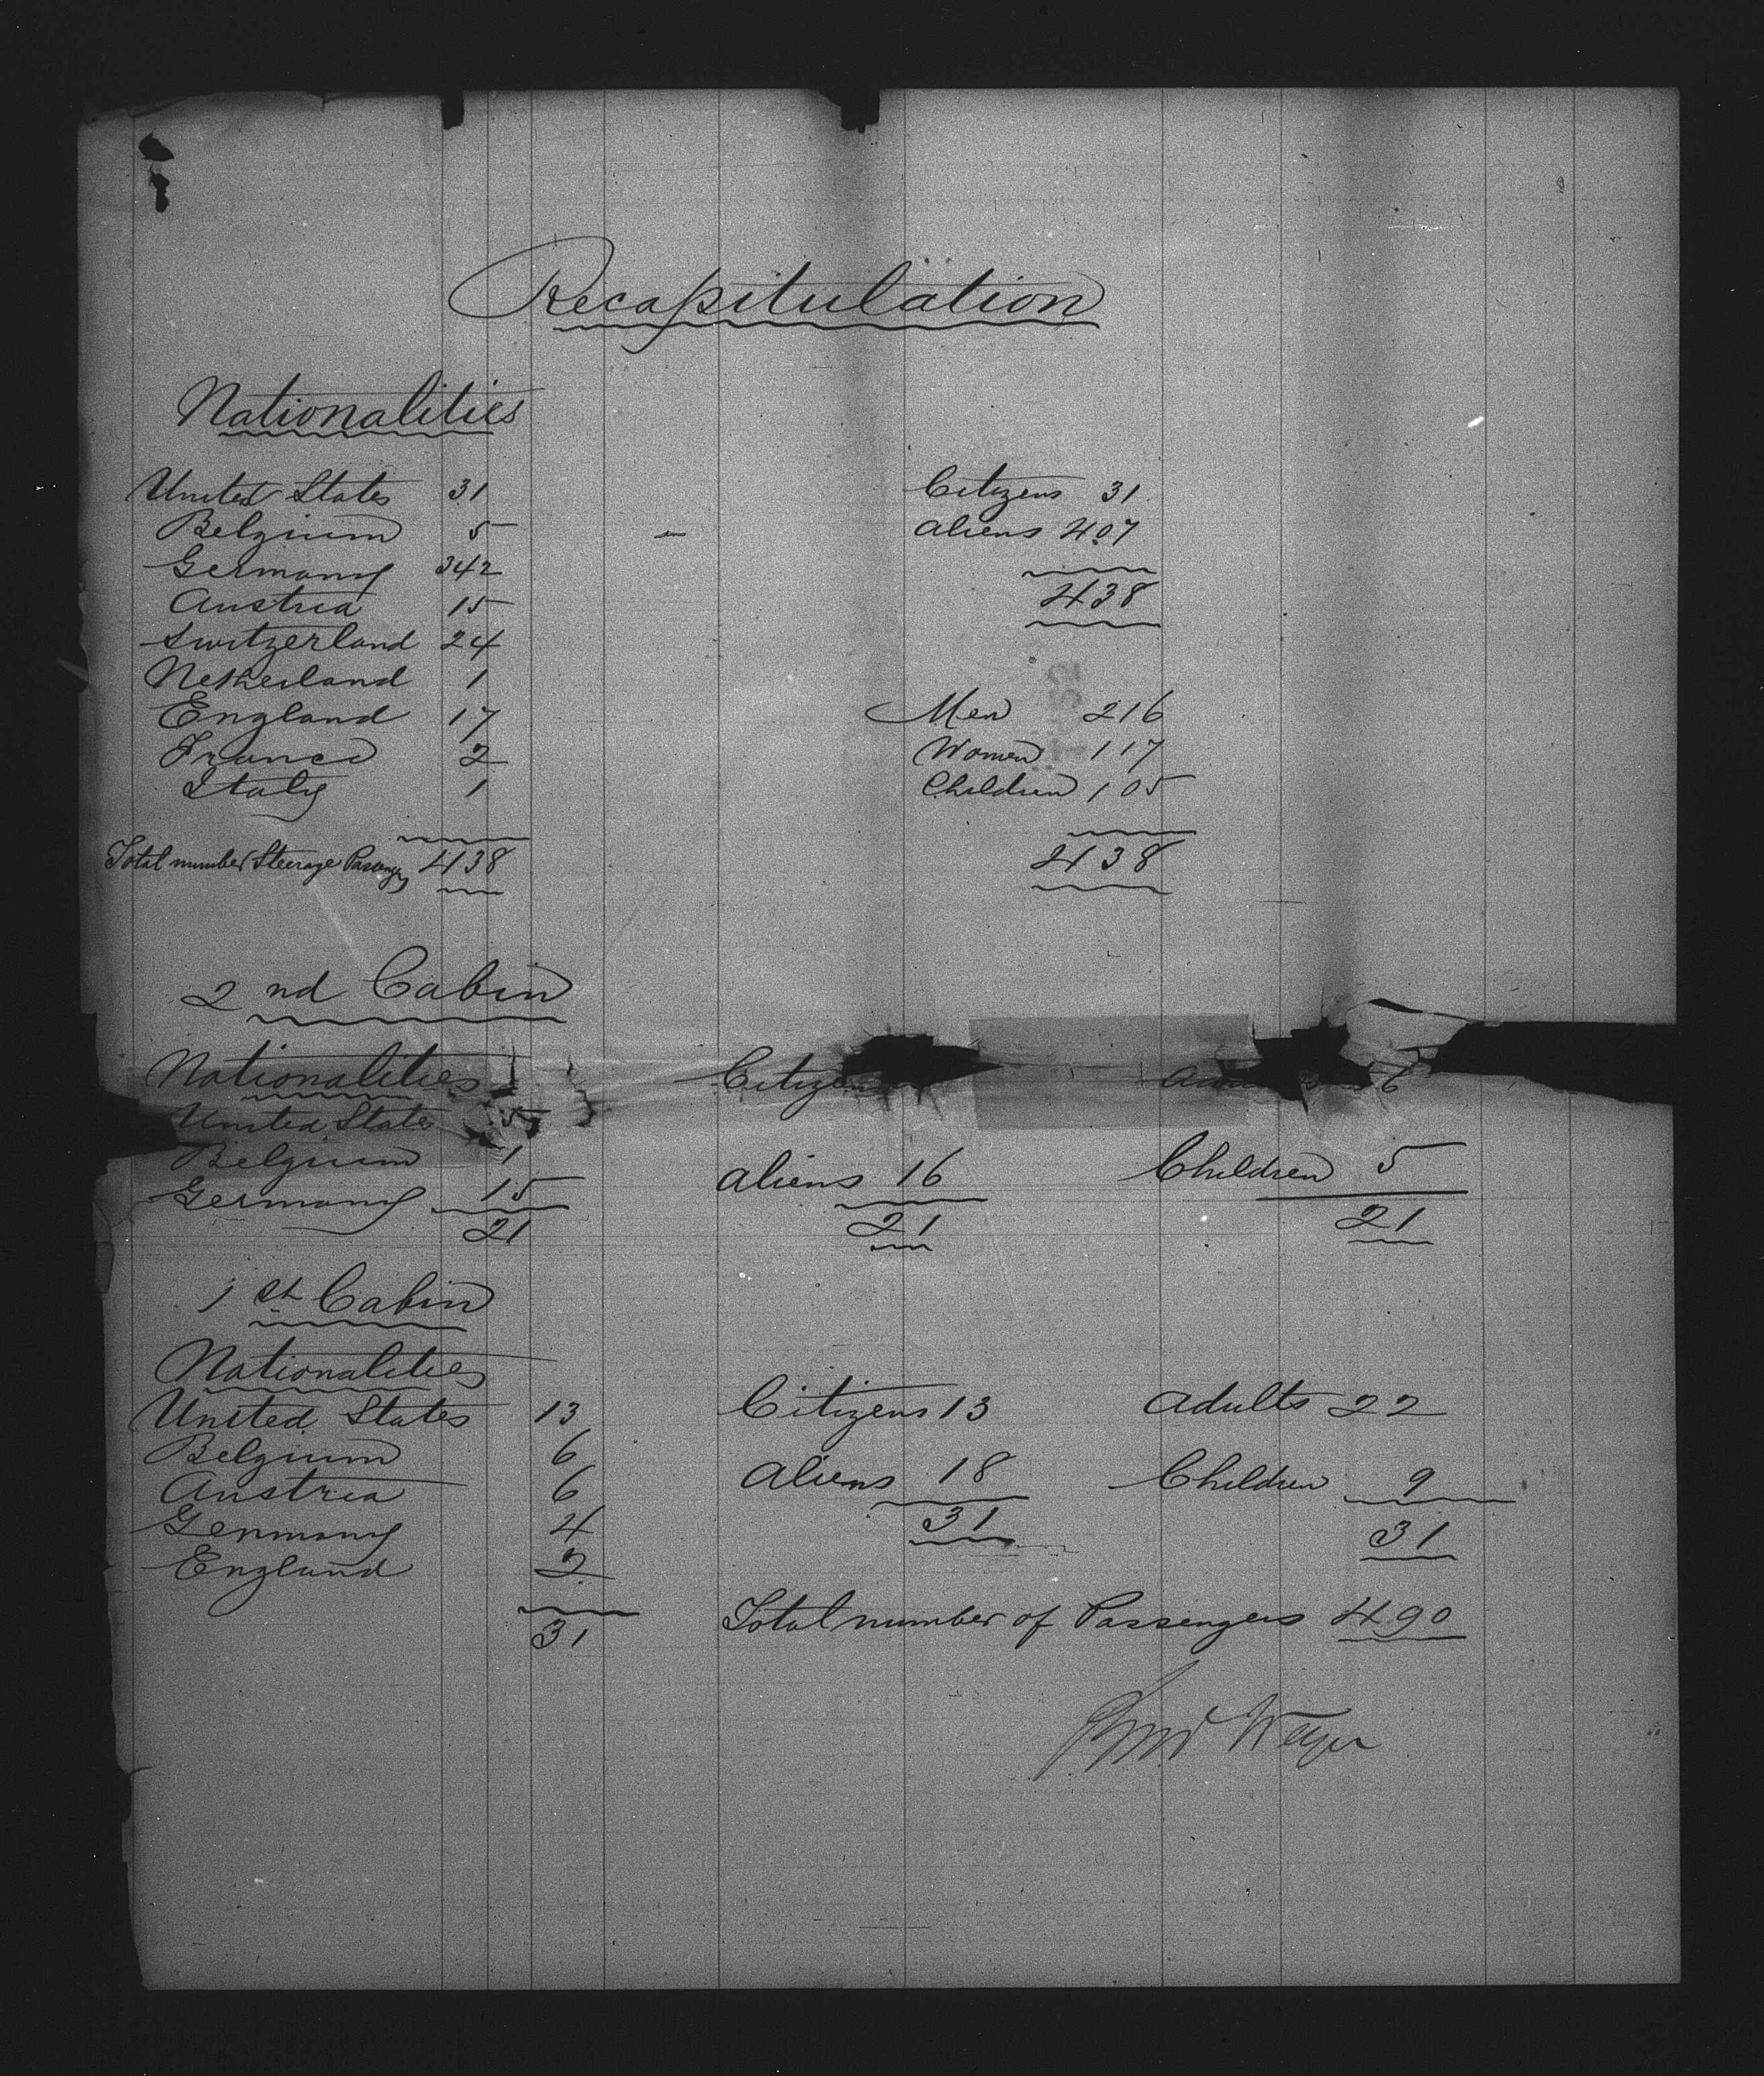 Recapitulation
Nationalities
United States 31
Belgium 5
Germany 342
Austria 15
Switzerland 24
Netherland 1
England 17
France 2
Italy 1
Total number Steerage Passengers 438
Citizens 31
Aliens 407
438
Men 216
Women 117
Children 105
438
2nd Cabin
Nationalities
United States 5
Belgium 1
Germany 15
21
Aliens 16
21
Children 5
21
1st Cabin
Nationalities
United States 13
Belgium 6
Austria 6
Germany 4
England 2
31
Citizens 13
Aliens 18
31
Adults 22
Children 9
31
Total number of Passengers 490